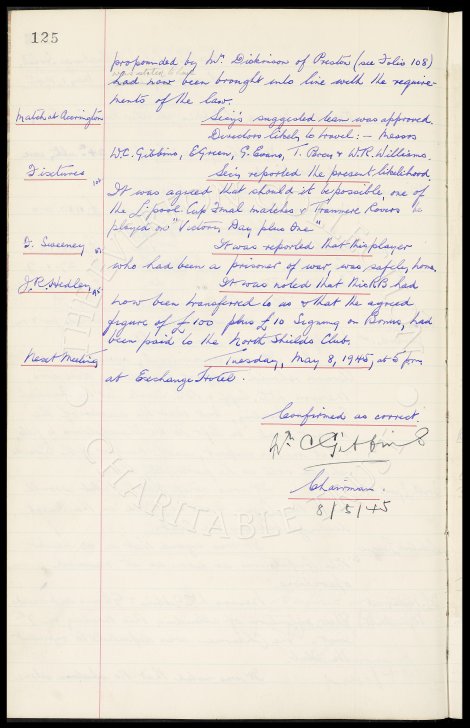 125
propounded by Mr. Dickinson of Preston (see Folio 108)
was stated to have
had now been brought into line with the require-
ments of the law.
Match at Accrington Secy's suggested team was approved.
Directors likely to travel:- Messrs
W.C. Gibbins, E. Green, G. Evans, T. Brow & W.R. Williams.
Fixtures Secy reported the present likelihood.
It was agreed that should it be possible, one of
the L'pool Cup Final matches v Tranmere Rovers be
played on "Victory Day plus One"
J. Sweeney It was reported that this player
who had been a prisoner of war, was safely home.
J.R. Hedley It was noted that this RB had
now been transferred to us & that the agreed
figure of £100 plus £10 Signing on Bonus, had
been paid to the North Shields Club.
Next Meeting Tuesday, May 8, 1945, at 5 pm
at Exchange Hotel.
Confirmed as correct.
Wm C Gibbins
Chairman.
8/5/45
CHARITABLE